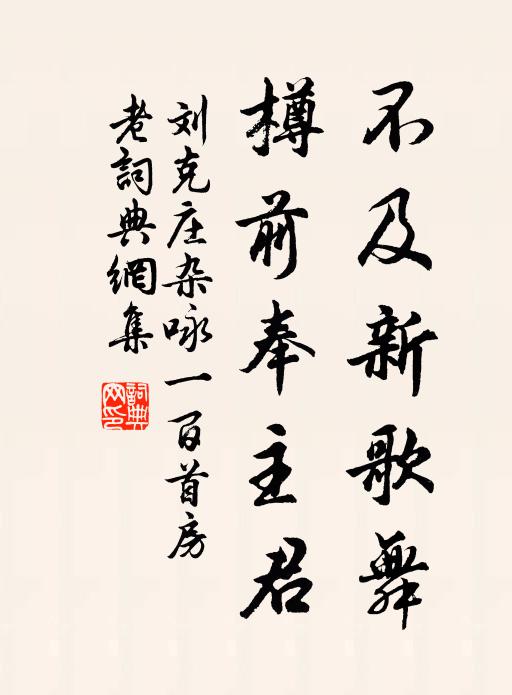 不及新歌舞
樽前奉主君
刘克庄杂咏一百首房
老詞典網集
詞典
网印